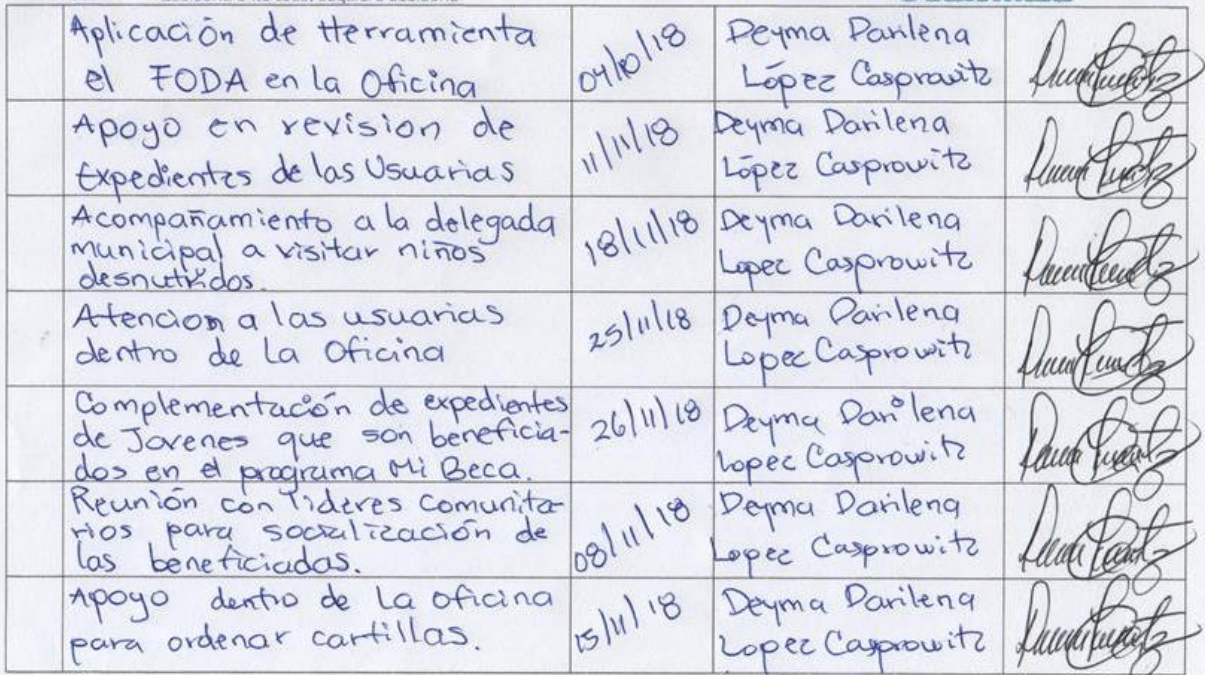 Aplicación de Herramienta
el FODA en la Oficina
04/10/18
Deyma Darilena
López Casprowitz
Apoyo en revision de
Expedientes de las Usuarias
11/11/18
Deyma Darilena
López Casprowitz
Acompañamiento a la delegada
municipal a visitar niños
desnutridos.
18/11/18
Deyma Darilena
Lopez Casprowitz
Atencion a las usuarias
dentro de La Oficina
25/11/18
Deyma Darilena
Lopez Casprowitz
Complementación de expedientes
de Jovenes que son beneficia-
dos en el programa Mi Beca.
26/11/18
Deyma Darilena
Lopez Casprowitz
Reunión con lideres Comunita-
rios para socialización de
las beneficiadas.
08/11/18
Deyma Darilena
Lopez Casprowitz
Apoyo dentro de La oficina
para ordenar cartillas.
15/11/18
Deyma Darilena
Lopez Casprowitz